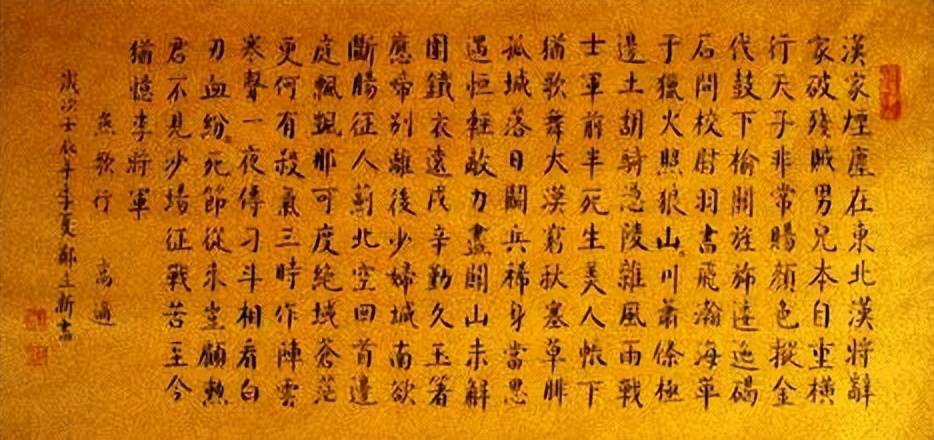 漢家煙塵在東北漢將辭
家破殘賊男兒本自重橫
行天子非常賜顏色摐金
伐鼓下榆關旌旆逶迤碣
石間校尉羽書飛瀚海單
于獵火照狼山川蕭條極
邊土胡騎憑陵雜風雨戰
士軍前半死生美人帳下
猶歌舞大漠窮秋塞草腓
孤城落日鬥兵稀身當恩
遇恒輕敵力盡關山未解
圍鐵衣遠戍辛勤久玉箸
應啼別離後少婦城南欲
斷腸征人薊北空回首邊
庭飄颻那可度絕域蒼茫
更何有殺氣三時作陣雲
寒聲一夜傳刁斗相看白
刃血紛々死節從來豈顧勲
君不見沙場征戰苦至今
猶憶李將軍
燕歌行 高適
歲次壬辰年季夏